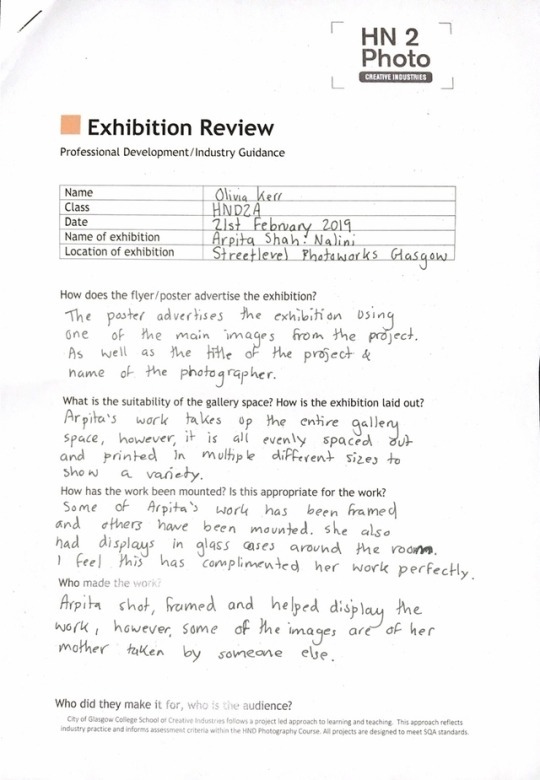 HN 2
Photo
CREATIVE INDUSTRIES
Exhibition Review
Professional Development/Industry Guidance
Name Olivia Kerr
Class HND2A
Date 21st February 2019
Name of exhibition Arpita Shah: Nalini
Location of exhibition Streetlevel Photoworks Glasgow
How does the flyer/poster advertise the exhibition?
The poster advertises the exhibition using
one of the main images from the project.
As well as the title of the project &
name of the photographer.
What is the suitability of the gallery space? How is the exhibition laid out?
Arpita's work takes up the entire gallery
space, however, it is all evenly spaced out
and printed in multiple different sizes to
show a variety.
How has the work been mounted? Is this appropriate for the work?
Some of Arpita's work has been framed
and others have been mounted. She also
had displays in glass cases around the room.
I feel this has complimented her work perfectly.
Who made the work?
Arpita shot, framed and helped display the
work, however, some of the images are of her
mother taken by someone else.
Who did they make it for, who is the audience?
City of Glasgow College School of Creative Industries follows a project led approach to learning and teaching. This approach reflects
industry practice and informs assessment criteria within the HND Photography Course. All projects are designed to meet SQA standards.